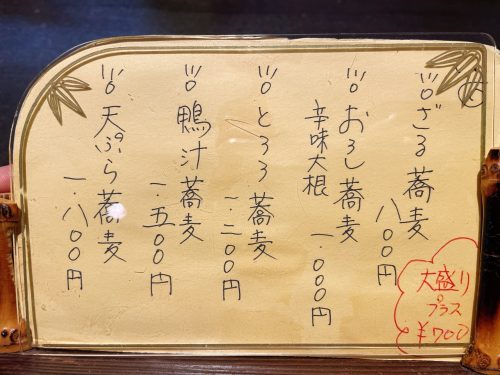 ざる蕎麦
八〇〇円
おろし蕎麦
辛味大根
一、〇〇〇円
とろろ蕎麦
一、二〇〇円
鴨汁蕎麦
一、五〇〇円
天ぷら蕎麦
一、八〇〇円
大盛り
プラス
¥700